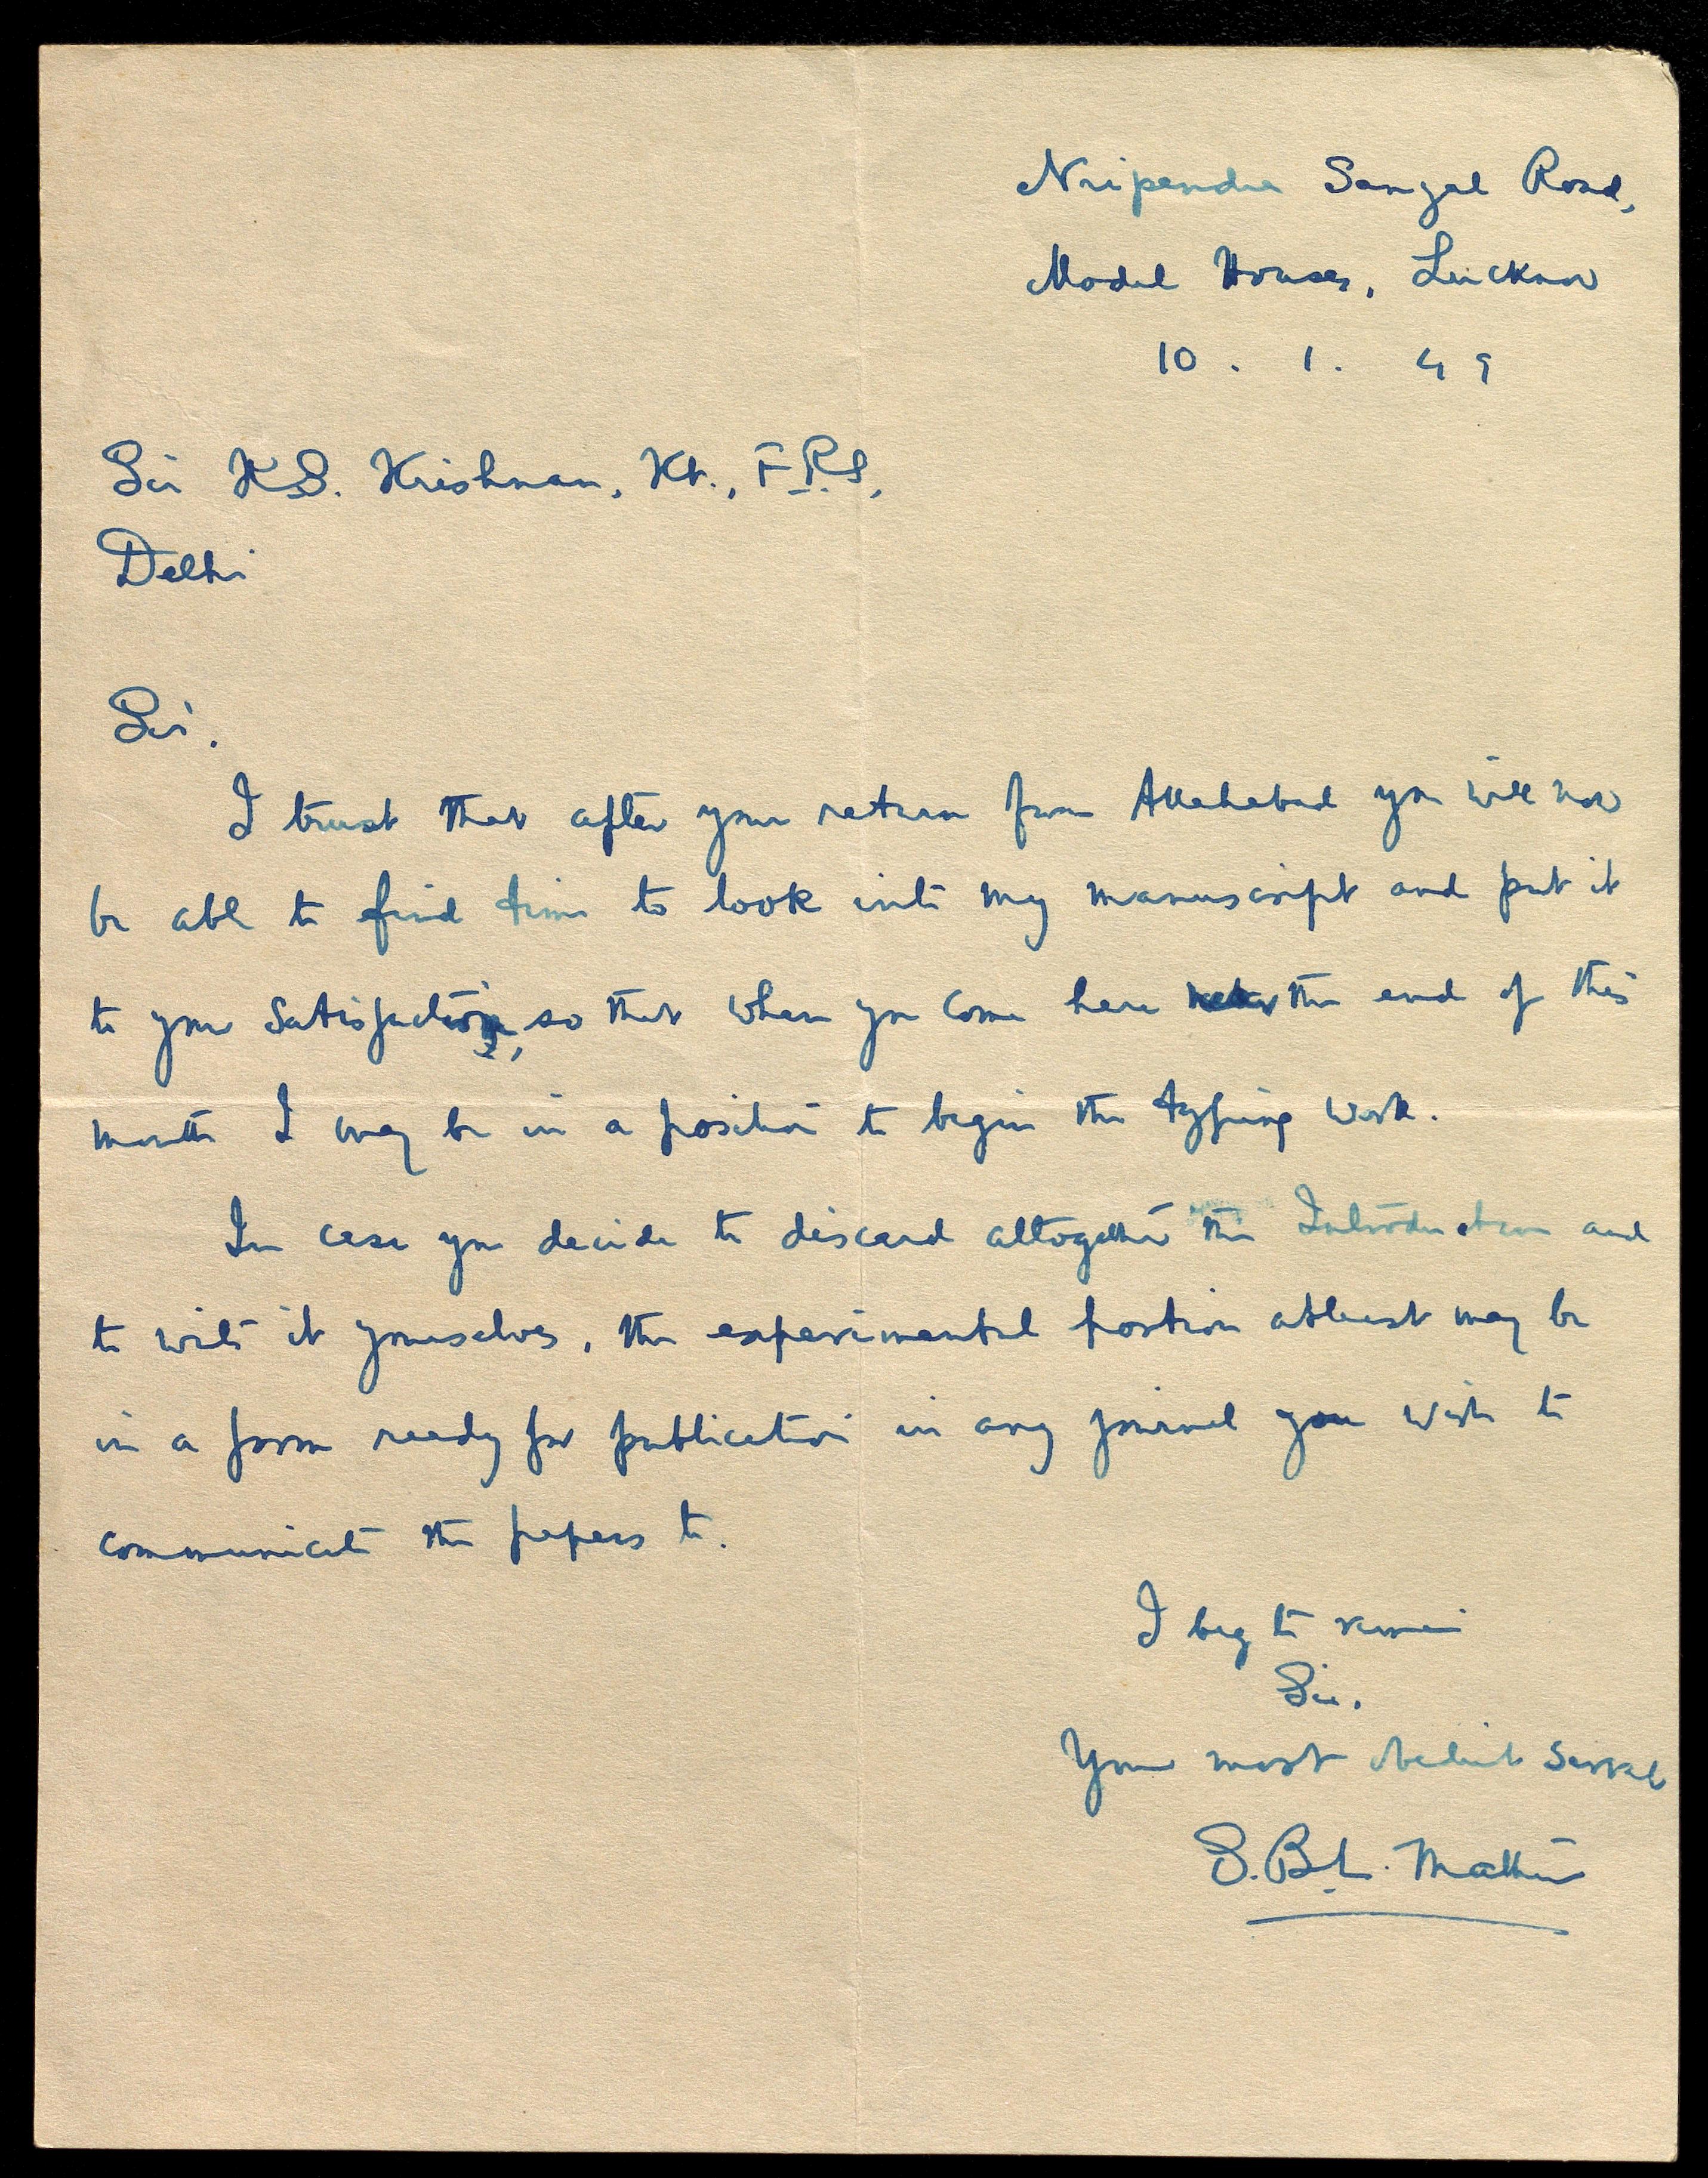 Nripendra Sanyal Road,
Model Houses, Lucknow
10 . 1 . 49
Sir K.S. Krishnan, Kt., F.R.S,
Delhi
Sir,
I trust that after your return from Allahabad you will now
be able to find time to look into my manuscript and put it
to your satisfaction, so that when you come here the end of this
month I may be in a position to begin the typing work.
In case you decide to discard altogether the Introduction and
to write it yourselves, the experimental portion atleast may be
in a form ready for publication in any journal you wish to
communicate the papers to.
I beg to remain
Sir,
Your most obedient servant
S.B.L. Mathur